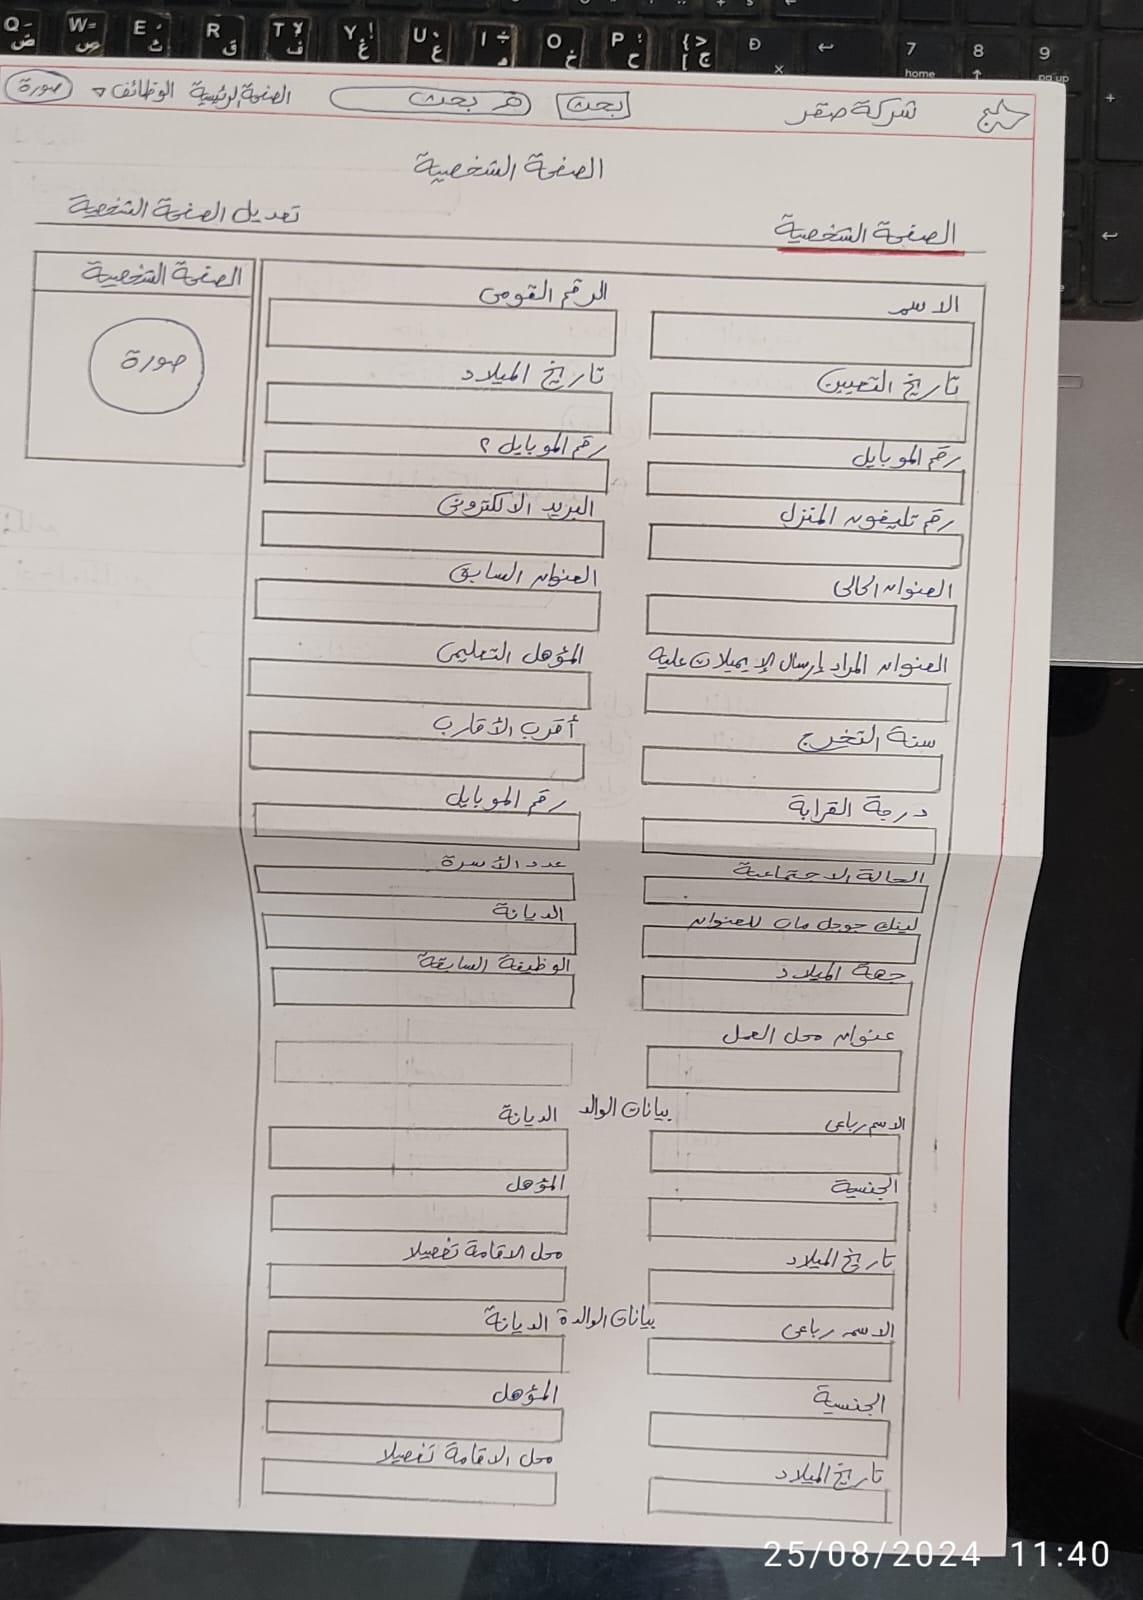 Q W E R T Y U I O P 7 8 9
ض ص ث ق ف غ ع خ ح ج
home pg up
شركة صقر بحث بحث الصفحة الرئيسية الوظائف صورة
الصفحة الشخصية
الصفحة الشخصية تعديل الصفحة الشخصية
الصفحة الشخصية
صورة
الاسم الرقم القومى
تاريخ التعيين تاريخ الميلاد
رقم الموبايل رقم الموبايل ٢
رقم تليفون المنزل البريد الالكترونى
العنوان الحالى العنوان السابق
العنوان المراد إرسال الإيميلات عليه المؤهل التعليمى
سنة التخرج أقرب الأقارب
درجة القرابة رقم الموبايل
الحالة الاجتماعية عدد الأسرة
لينك جوجل ماب للعنوان الديانة
جهة الميلاد الوظيفة السابقة
عنوان محل العمل
بيانات الوالد
الاسم رباعى الديانة
الجنسية المؤهل
تاريخ الميلاد محل الاقامة تفصيلا
بيانات الوالدة
الاسم رباعى الديانة
الجنسية المؤهل
تاريخ الميلاد محل الاقامة تفصيلا
25/08/2024 11:40